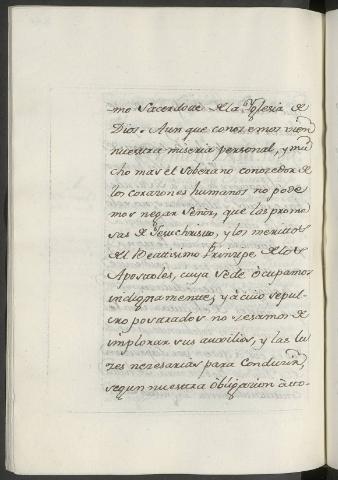 mo Sacerdote de la Yglesia de
Dios. Aun que conozemos vien
nuestra miseria personal, y mu
cho mas el soberano conozedor de
los corazones humanos no pode
mos negar Señor, que las prome
sas de Jesuchristo, y los meritos
del Beatisimo Principe de los
Apostoles, cuya sede ocupamos
indignamente, y à cuio sepul
cro postrados no zesamos de
implorar sus auxilios, y las lu
zes nezesarias para Conducir,
segun nuestra óbligazion àto-